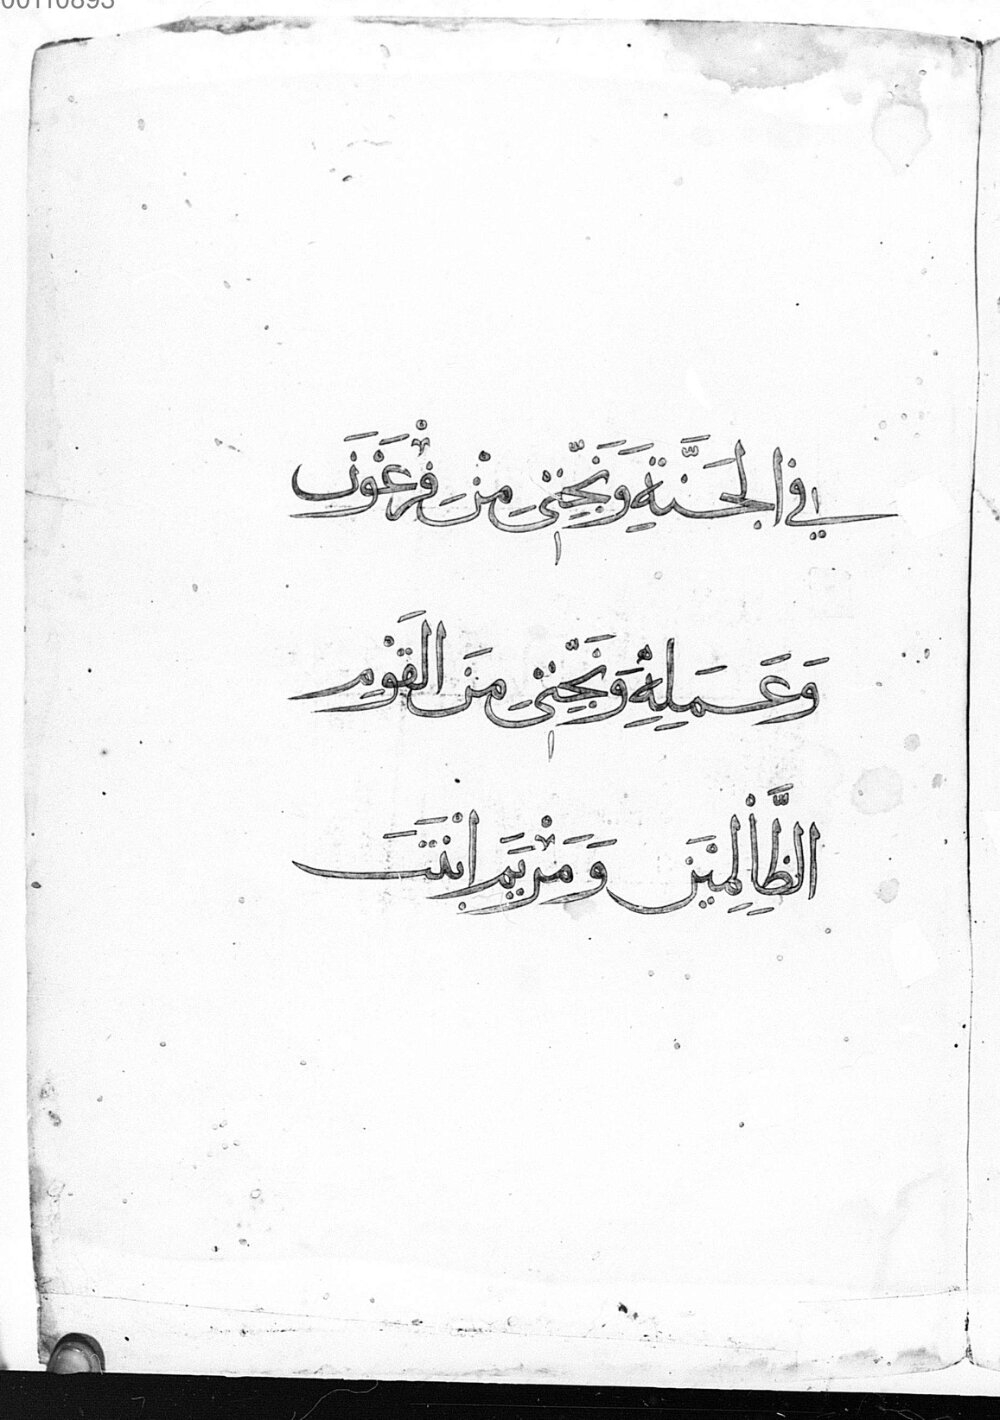 00110893
فِي الْجَنَّةِ وَنَجِّنِي مِنْ فِرْعَوْنَ
وَعَمَلِهِ وَنَجِّنِي مِنَ الْقَوْمِ
الظَّالِمِينَ وَمَرْيَمَ ابْنَتَ